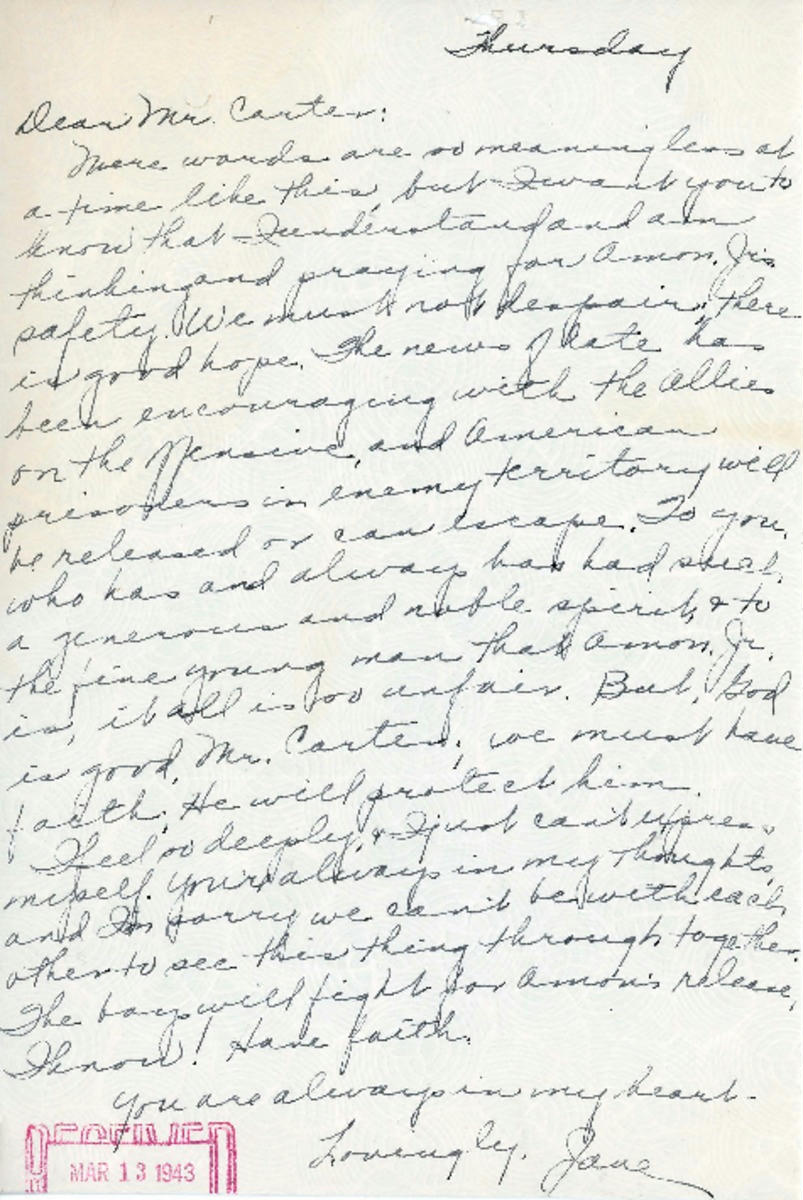 Thursday
Dear Mr. Carter:
Mere words are so meaningless at
a time like this, but I want you to
know that I understand and am
thinking and praying for Amon, Jr's
safety. We must not despair, there
is good hope. The news of late has
been encouraging with the Allies
on the offensive, and American
prisoners in enemy territory will
be released or can escape. To you,
who has and always has had such
a generous and noble spirit, & to
the fine young man that Amon, Jr.
is, it all is so unfair. But, God
is good, Mr. Carter, we must have
faith. He will protect him.
I feel so deeply, & I just can't express
myself. You're always in my thoughts,
and I'm sorry we can't be with each
other to see this thing through together.
The boys will fight for Amon's release,
I know! Have faith.
You are always in my heart-
Lovingly, Jane
RECEIVED
MAR 13 1943